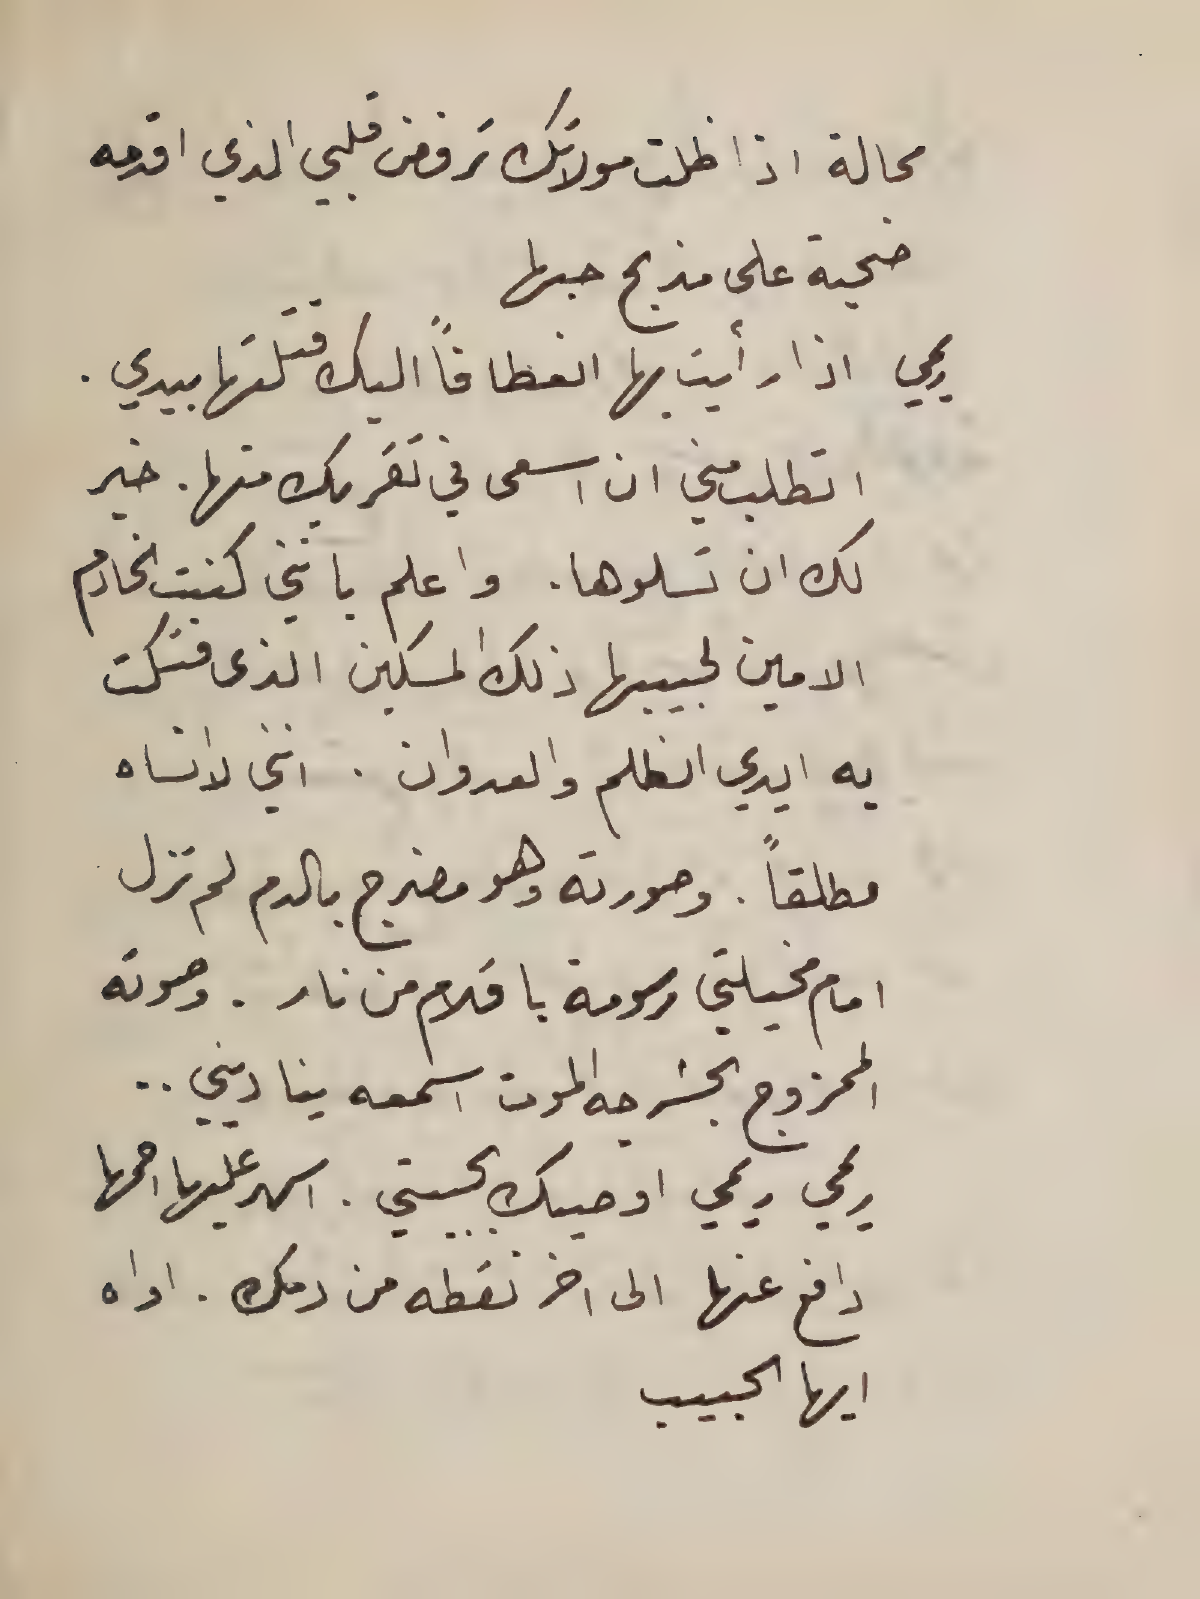 محالة اذا ظلت مولاتك ترفض قلبي الذي اقدمه
ضحية على مذبح حبها
ريمي اذا رأيت بها انعطافاً اليك قتلتها بيدي .
اتطلب مني ان اسعى في تقريبك منها . خير
لك ان تسلوها . واعلم بانني كنت الخادم
الامين لحبيبها ذلك المسكين الذى فتكت
به ايدي الظلم والعدوان . انني لا انساه
مطلقاً . وصورته وهو مضرج بالدم لم تزل
امام مخيلتي مرسومة باقلام من نار . وصوته
الممزوج بحشرجه الموت اسمعه يناديني ..
ريمي ريمي اوصيك بحبيبتي . اسهر عليها احمها
دافع عنها الى اخر نقطه من دمك . اواه
ايها الحبيب